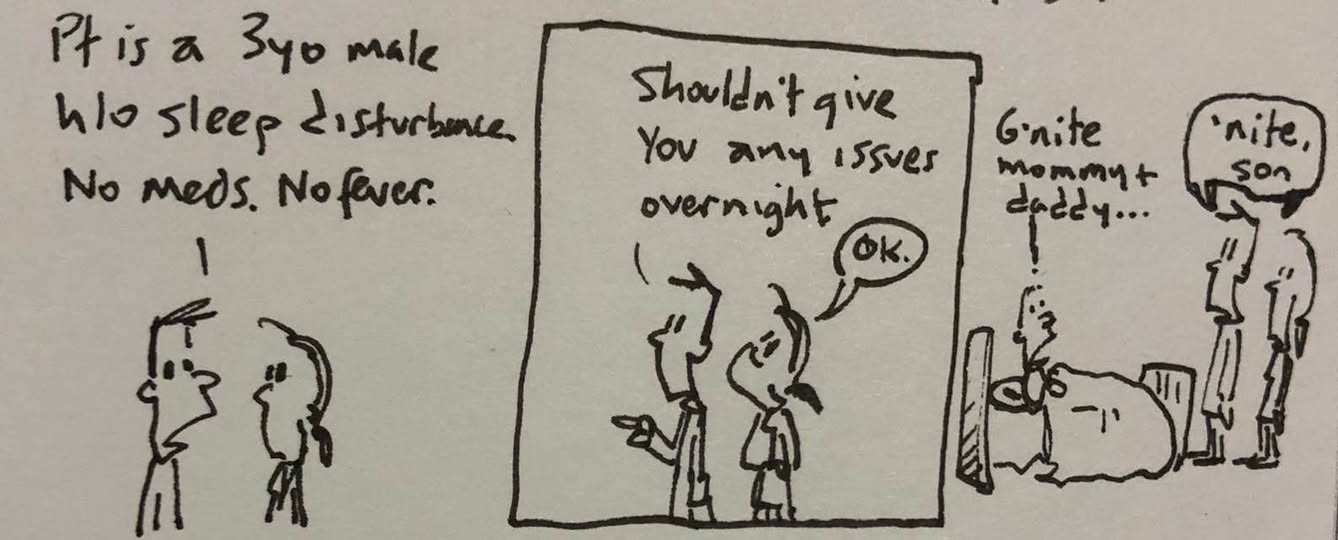 Pt is a 3yo male
h/o sleep disturbance.
No meds. No fever.
Shouldn't give
you any issues
overnight
OK.
G'nite
mommy +
daddy...
'nite,
son